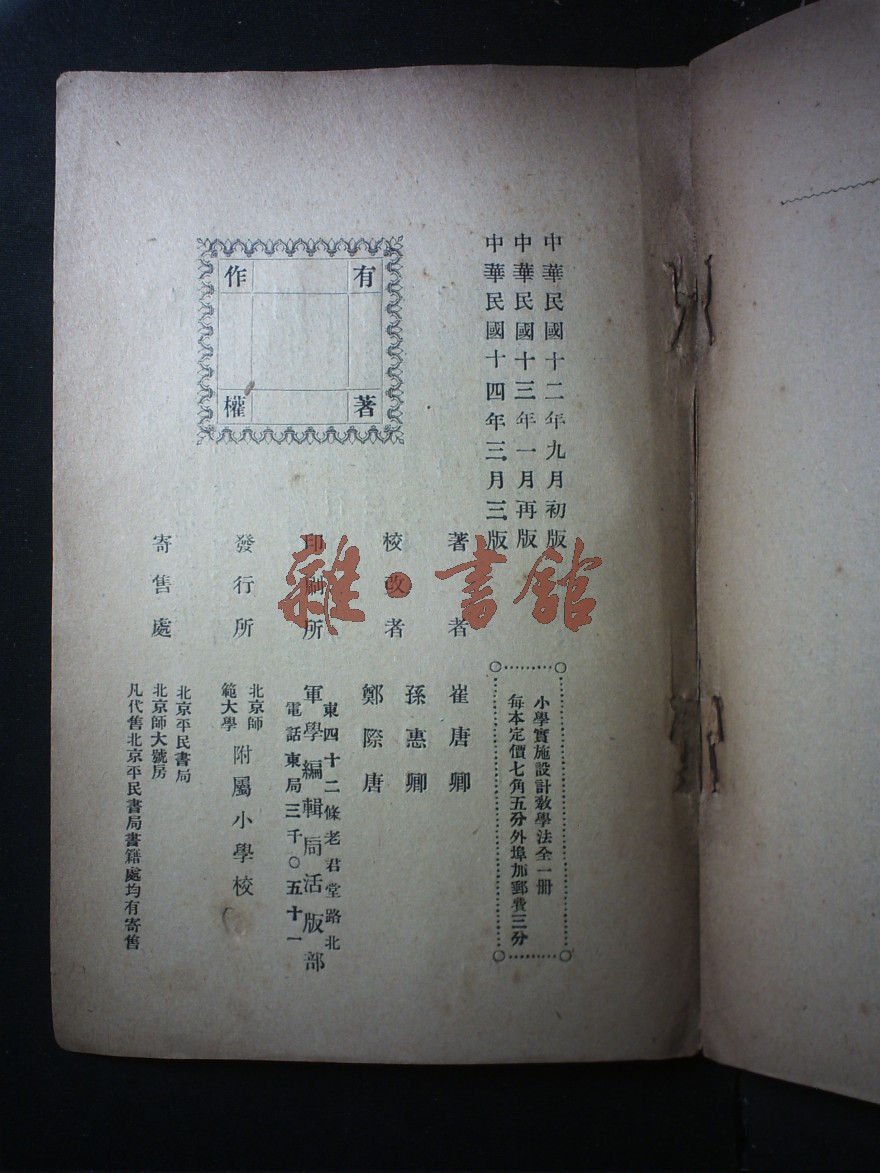 中華民國十二年九月初版
中華民國十三年一月再版
中華民國十四年三月三版
有著作權
小學實施設計教學法全一冊
每本定價七角五分外埠加郵費三分
著者 崔唐卿
校改者 孫惠卿
鄭際唐
印刷所 東四十二條老君堂路北
軍學編輯局活版部
電話東局三千〇五十一
發行所 北京師範大學附屬小學校
寄售處 北京平民書局
北京師大號房
凡代售北京平民書局書籍處均有寄售
雜·書館